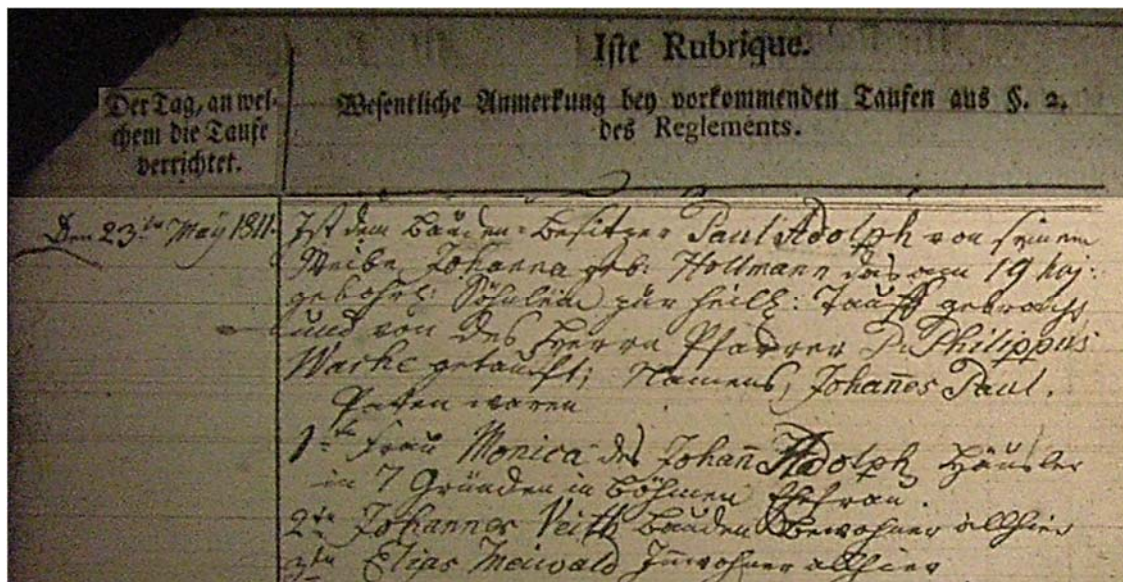 Iste Rubrique.
Der Tag, an wel-
chem die Taufe
verrichtet.
Wesentliche Anmerkung bey vorkommenden Taufen aus §. 2.
des Reglements.
Den 23ten May 1811.
Ist dem Bauden-Besitzer Paul Adolph von seinem
Weibe Johanna geb: Hollmann das am 19 huj:
gebohrl: Söhnlein zur heil: Tauff gebracht
und von des Herrn Pfarrer P. Philippus
Wache getauft; Namens, Johañes Paul.
Patten waren
1te Frau Monica des Johañ Adolph Häusler
in 7 Gründen in Böhmen Ehefrau.
2te Johannes Veith Bauden Bewohner allhier
3te Elias Meiwald Inwohner allhier